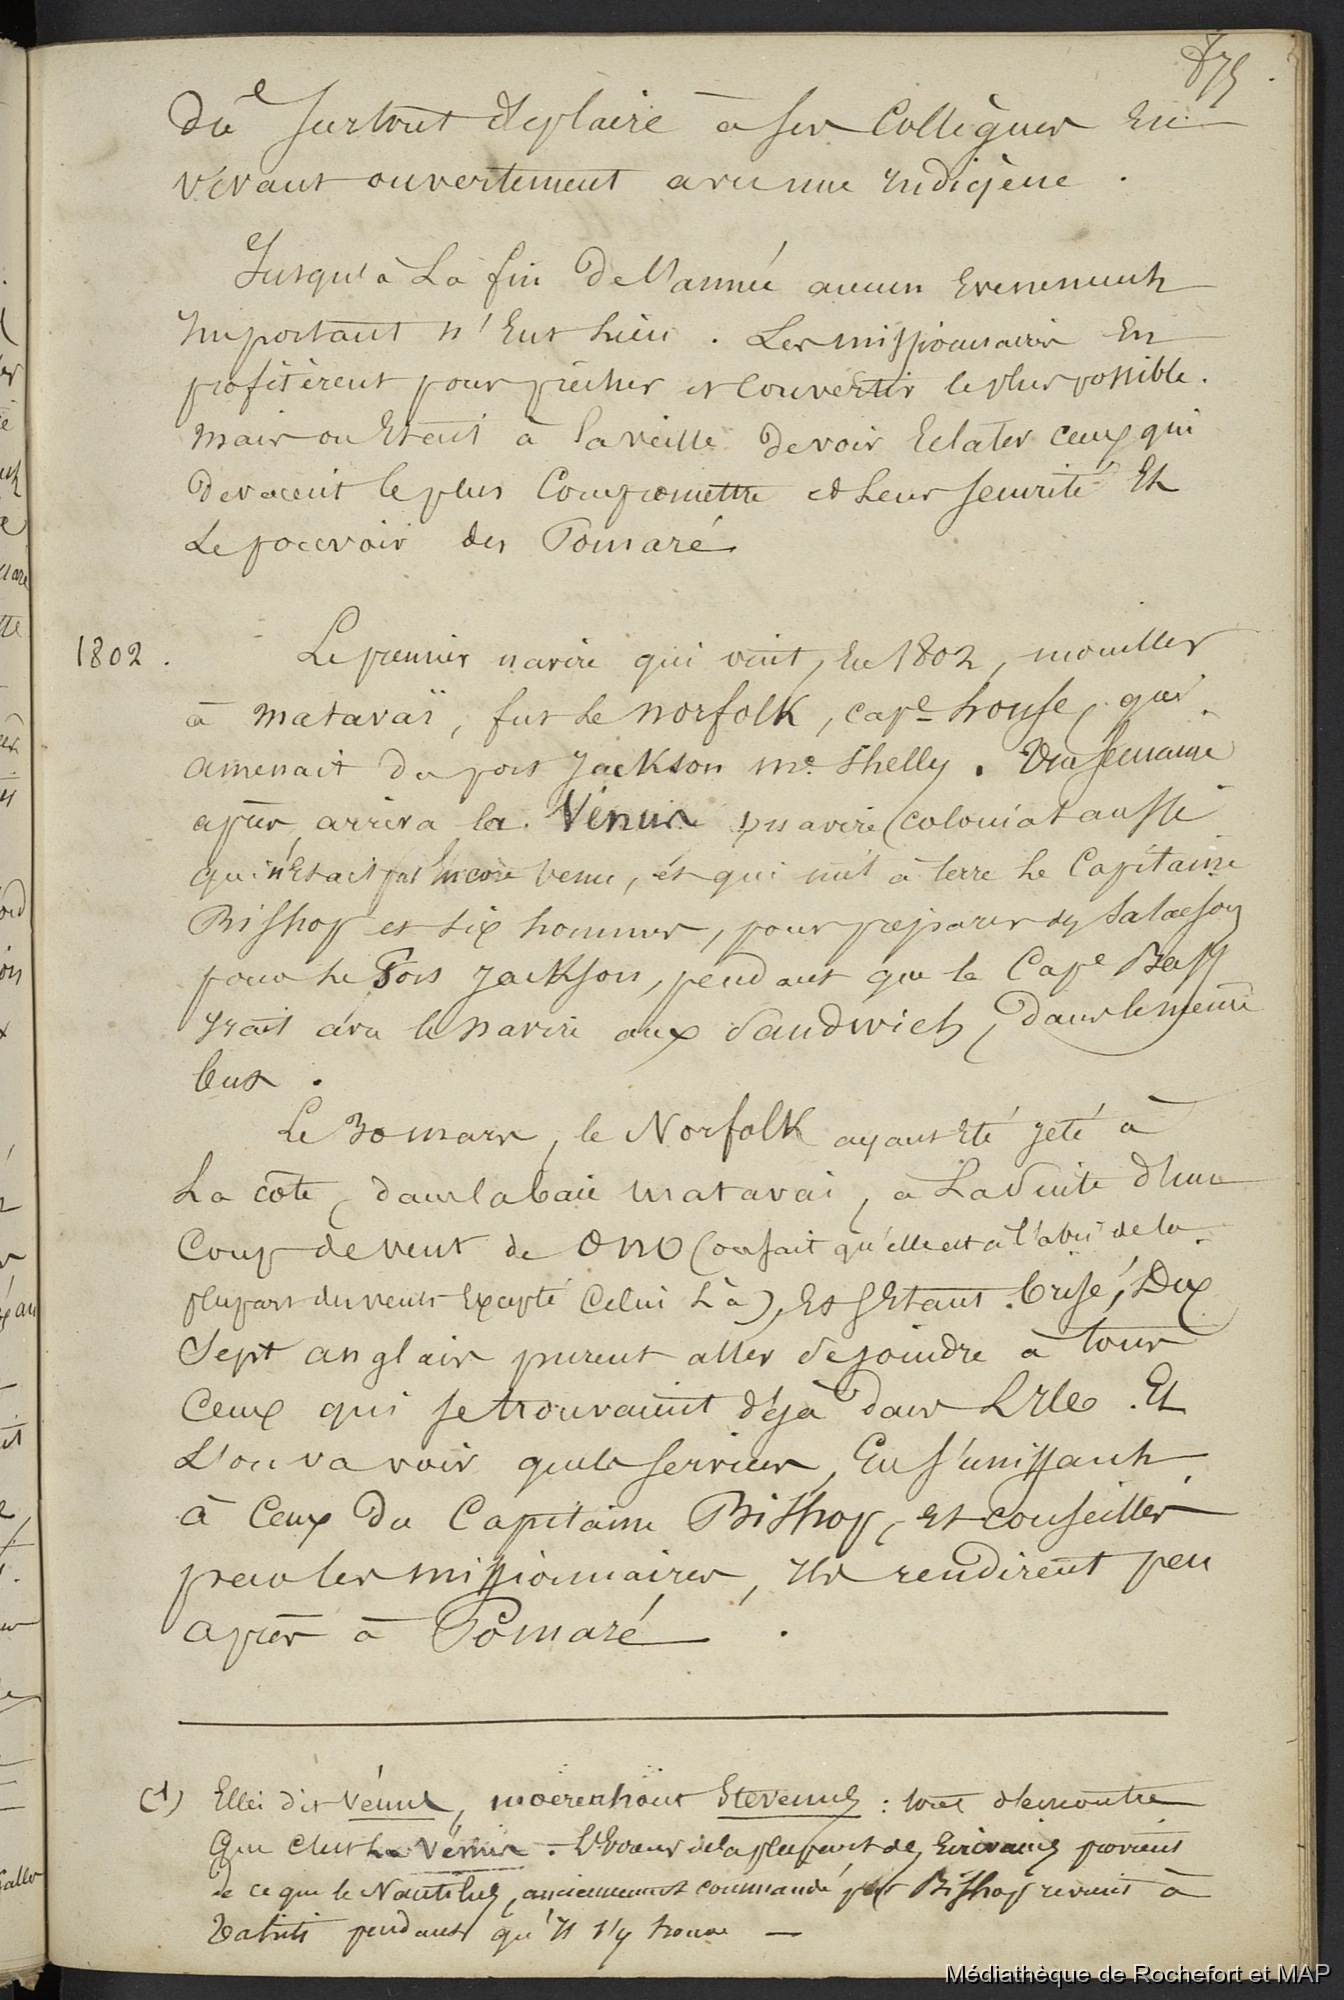 875
dû surtout déplaire à ses Collègues En
vivant ouvertement avec une Indigène.
Jusqu'à La fin De l'année aucun Evenement
Important n'Eut Lieu. Les missionnaires En
profitèrent pour prêcher et Convertir le plus possible.
mais on Etait à la veille de voir Eclater ceux qui
devaient le plus Compromettre et Leur sécurité Et
Le pouvoir des Pomaré.
1802. Le premier navire qui vint, En 1802, mouiller
à Matavaï, fut Le Norfolk, cape house, qui
amenait du port Jackson Mr Shelly. Une semaine
après arriva la Vénus navire (colonial aussi
qui n'Etait pas Encore venu, et qui mit à terre Le Capitaine
Bishop et six hommes, pour préparer des Salaisons
pour Le Port Jackson, pendant que le Cape Bass
Irait avec le navire aux Sandwich, dans le même
but.
Le 30 mars, le Norfolk ayant Eté jeté à
La côte, dans la baie Matavai, à La Suite d'un
Coup de vent de ONO (on sait qu'elle est à l'abri de la
plupart des vents Excepté Celui Là), Et s'Etant brisé, Dix
Sept anglais purent aller se joindre à tous
Ceux qui se trouvaient déjà dans L'Ile. Et
L'on va voir quels services, En s'unissant
à Ceux du Capitaine Bishop, Et conseillés
par les missionnaires, Ils rendirent peu
après à Pomaré.
(1) Ellis dit Vénus, Moerenhout Stevenus : tout démontre
que c'est La Vénus. L'Erreur de la plupart des Ecrivains provient
de ce que le Nautilus, anciennement commandé par Bishop revint à
Tahiti pendant qu'Il s'y trouve —
Médiathèque de Rochefort et MAP